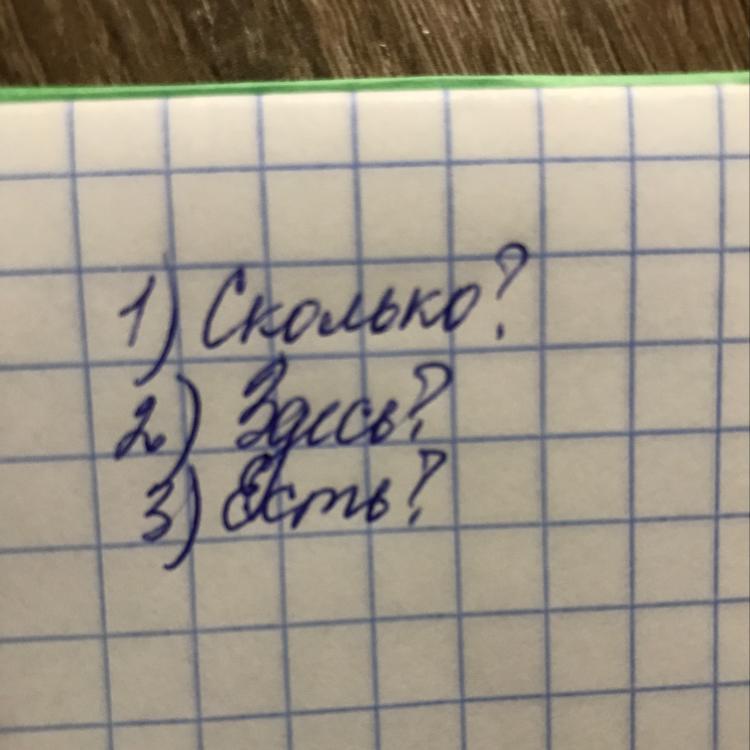 1) Сколько?
2) Здесь?
3) Есть?